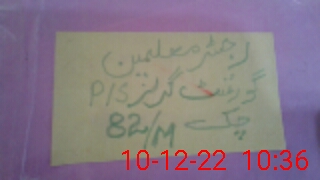 رجسٹر معلمین
گورنمنٹ گرلز P/S
چک 82/M
10-12-22 10:36